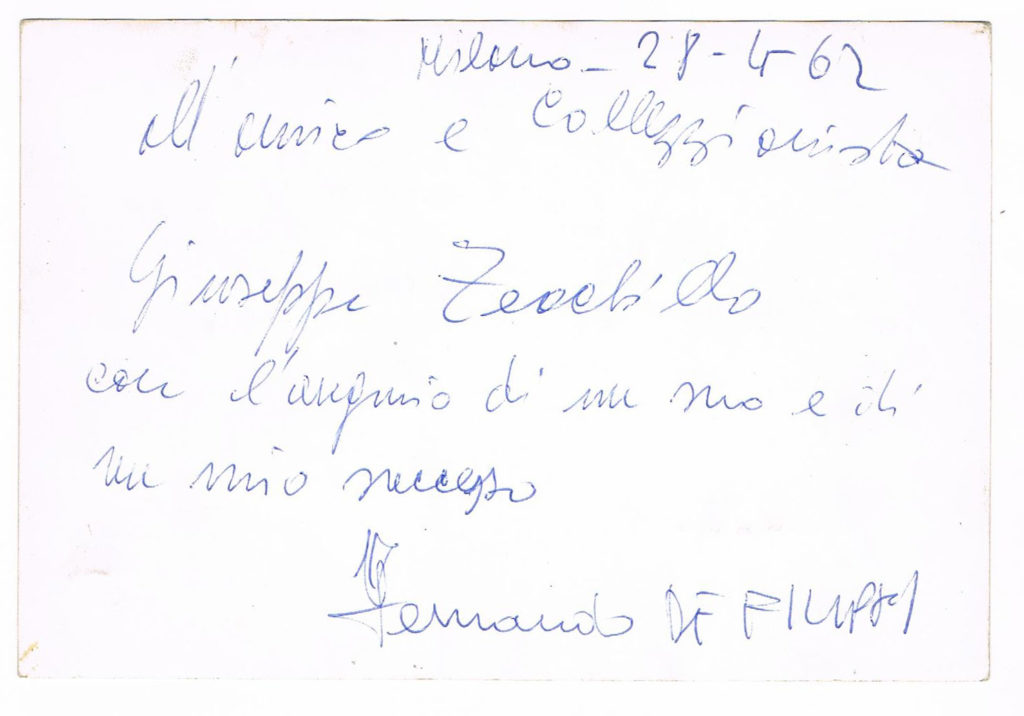 Milano - 28-4-62
all'amico e Collezzionista
Giuseppe Zecchillo
con l'augurio di un suo e di
un mio successo
Fernando DE FILIPPI